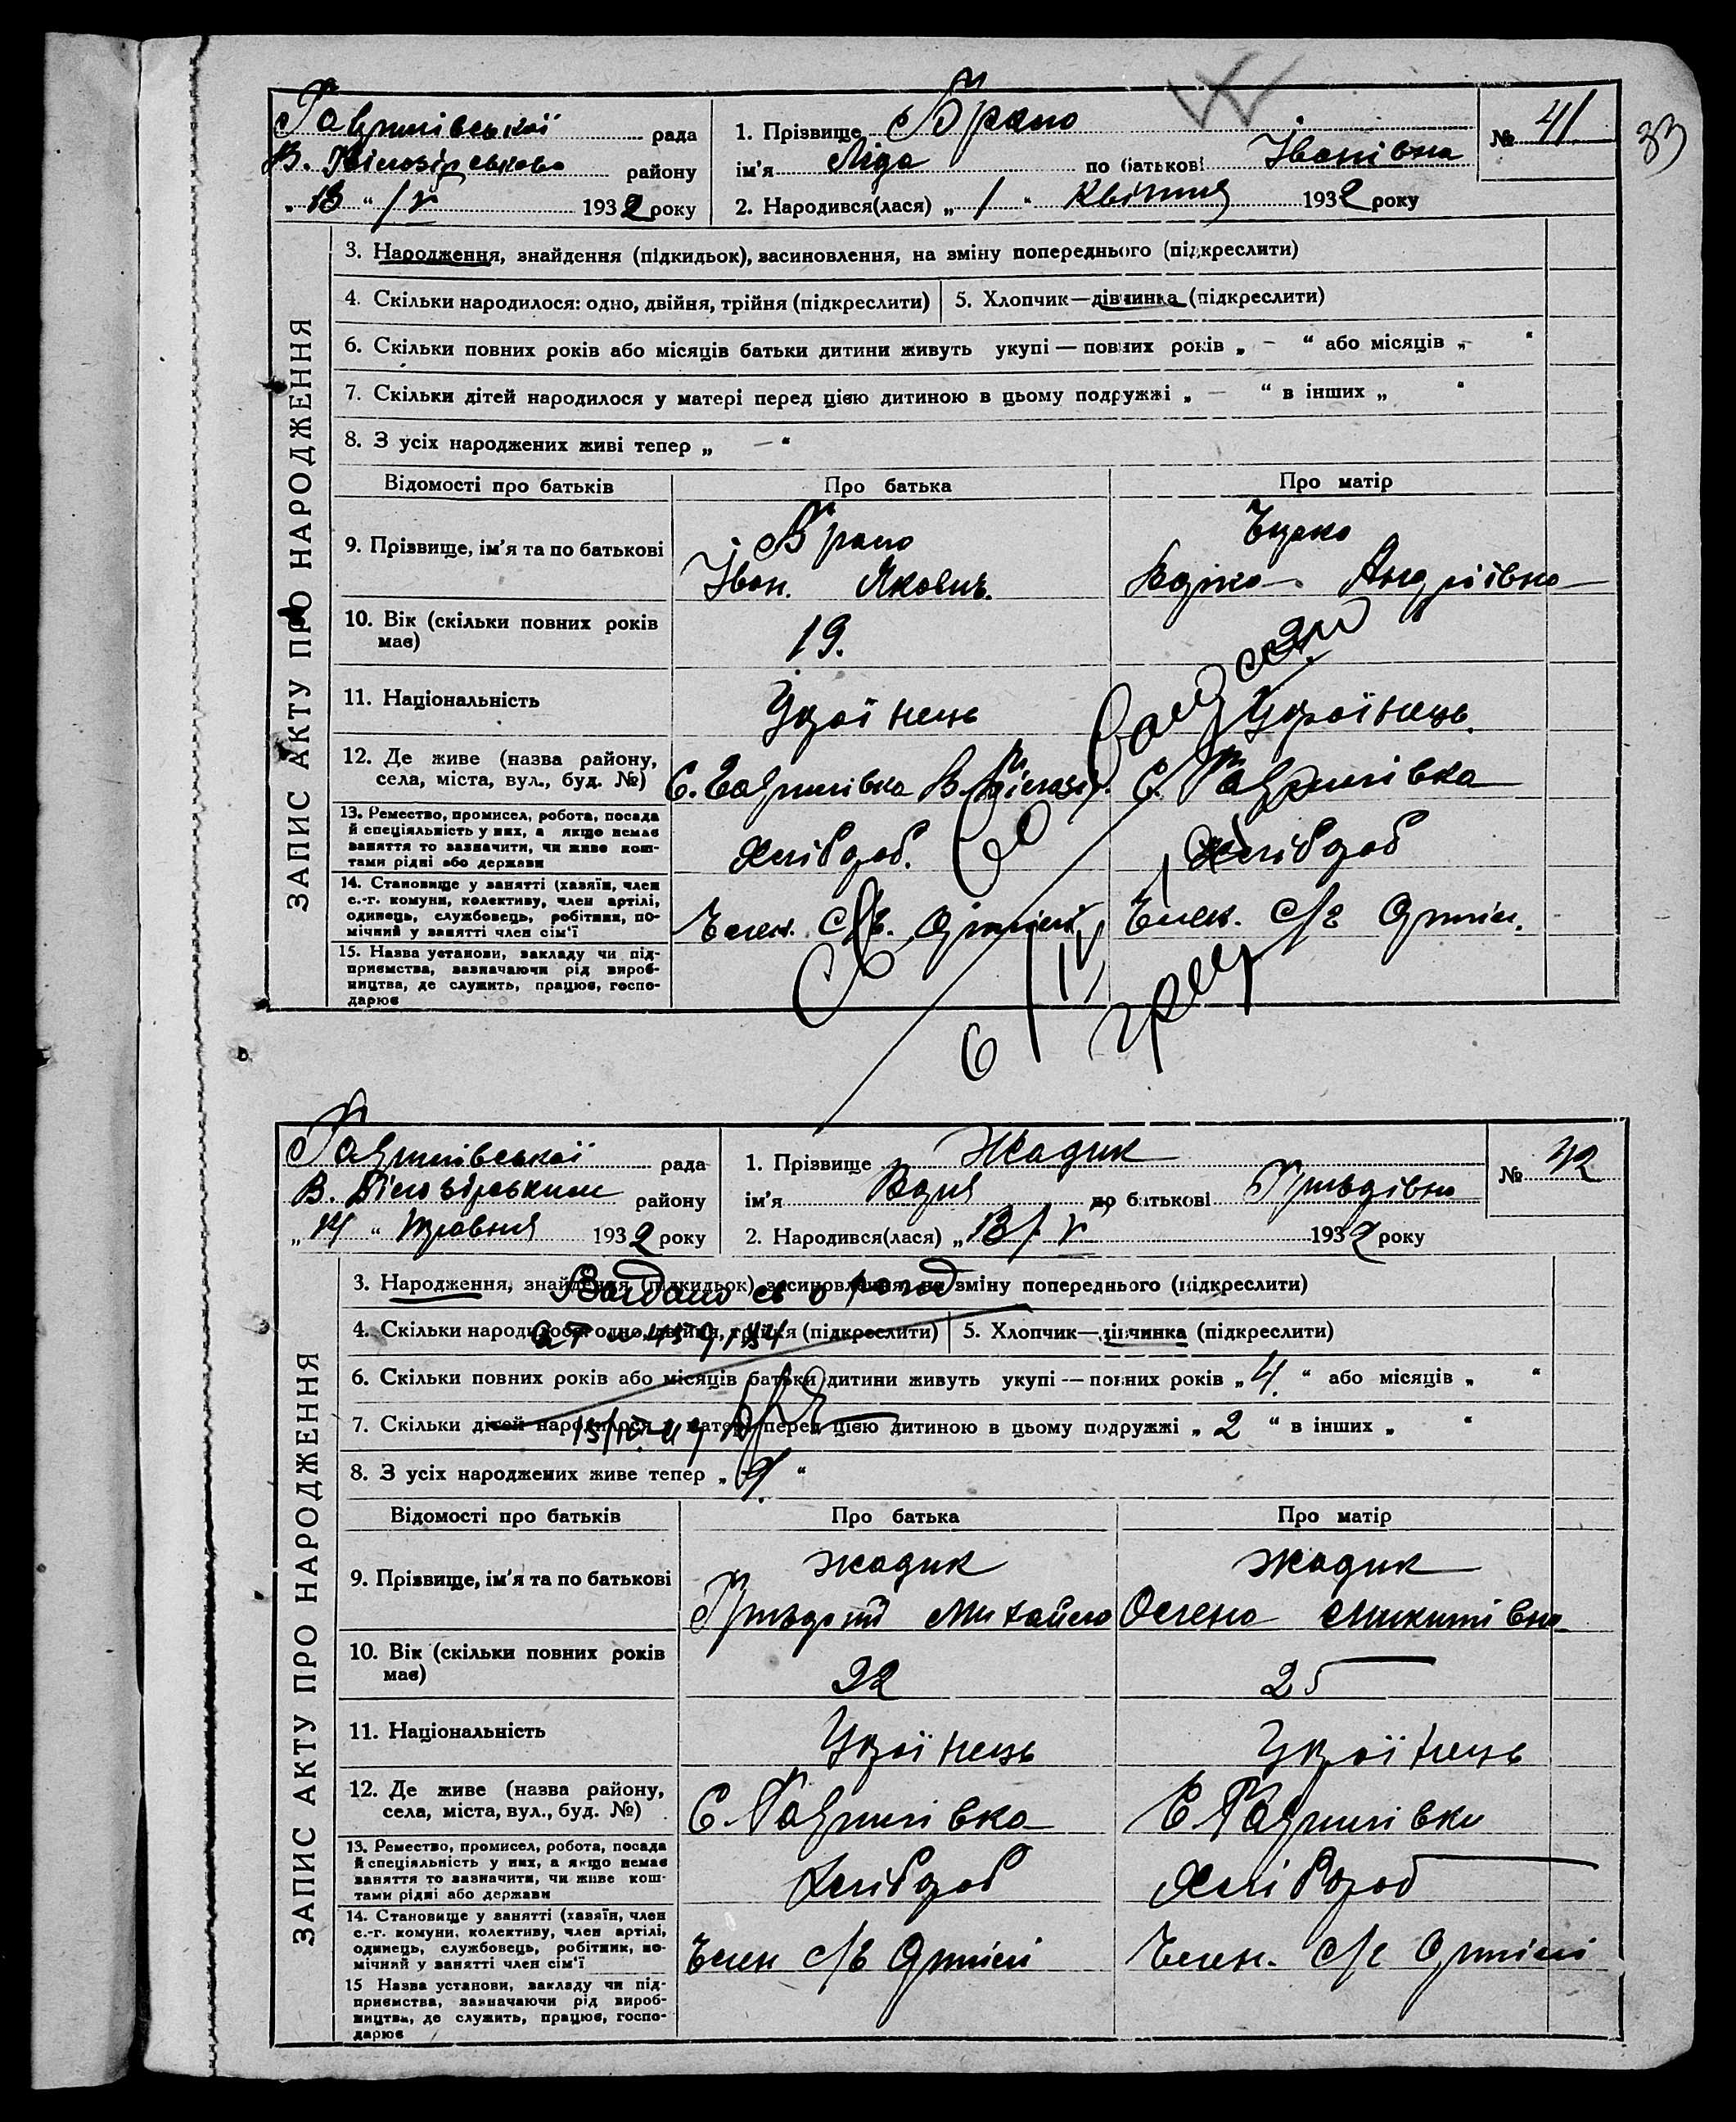 Гаврилівської рада
В. Білозірського району
„ 13 “ /V 1932 року
1. Прізвище
ім'я Ліда по батькові Іванівна
2. Народився(лася) „ 1 “ Квітня 1932 року
№ 41
33
ЗАПИС АКТУ ПРО НАРОДЖЕННЯ
3. Народження, знайдення (підкидьок), засиновлення, на зміну попереднього (підкреслити)
4. Скільки народилося: одно, двійня, трійня (підкреслити)
5. Хлопчик—дівчинка (підкреслити)
6. Скільки повних років або місяців батьки дитини живуть укупі — повних років „ – “ або місяців „ – “
7. Скільки дітей народилося у матері перед цією дитиною в цьому подружжі „ – “ в інших „ “
8. З усіх народжених живі тепер „ – “
Відомості про батьків
Про батька
Про матір
9. Прізвище, ім'я та по батькові
Іван. Якович.
Андріївна
10. Вік (скільки повних років має)
19.
11. Національність
Українець
Українець.
12. Де живе (назва району, села, міста, вул., буд. №)
С. Гаврилівка
С. Гаврилівка
13. Ремество, промисел, робота, посада
й спеціяльність у них, а якщо немає
заняття то зазначити, чи живе кош-
тами рідні або держави
Хлібороб.
Хлібороб
14. Становище у занятті (хазяїн, член
с.-г. комуни, колективу, член артілі,
одинець, службовець, робітник, по-
мічний у занятті член сім'ї
Член. с/г. Артілі
Член. с/г Артіл.
15. Назва установи, закладу чи під-
приємства, зазначаючи рід вироб-
ництва, де служить, працює, госпо-
дарює
6/IV
Гаврилівської рада
В. Білозірський району
„ 14 “ травня 1932 року
1. Прізвище Жадик
ім'я по батькові
2. Народився(лася) „ 13/V 1932 року
№ 42
ЗАПИС АКТУ ПРО НАРОДЖЕННЯ
3. Народження, знайдення (підкидьок), засиновлення, на зміну попереднього (підкреслити)
4. Скільки народилося: одно, двійня, трійня (підкреслити)
5. Хлопчик—дівчинка (підкреслити)
6. Скільки повних років або місяців батьки дитини живуть укупі — повних років „ 4. “ або місяців „ “
7. Скільки дітей народилося у матері перед цією дитиною в цьому подружжі „ 2 “ в інших „ “
8. З усіх народжених живе тепер „ “
Відомості про батьків
Про батька
Про матір
9. Прізвище, ім'я та по батькові
Жадик
Жадик
Михайло
Олена Микитівна
10. Вік (скільки повних років має)
22
25
11. Національність
Українець
Українець
12. Де живе (назва району, села, міста, вул., буд. №)
С. Гаврилівка
С. Гаврилівка
13. Ремество, промисел, робота, посада
й спеціяльність у них, а якщо немає
заняття то зазначити, чи живе кош-
тами рідні або держави
Хлібороб
Хлібороб
14. Становище у занятті (хазяїн, член
с.-г. комуни, колективу, член артілі,
одинець, службовець, робітник, по-
мічний у занятті член сім'ї
Член с/г Артілі
Член. с/г Артілі
15 Назва установи, закладу чи під-
приємства, зазначаючи рід вироб-
ництва, де служить, працює, госпо-
дарює